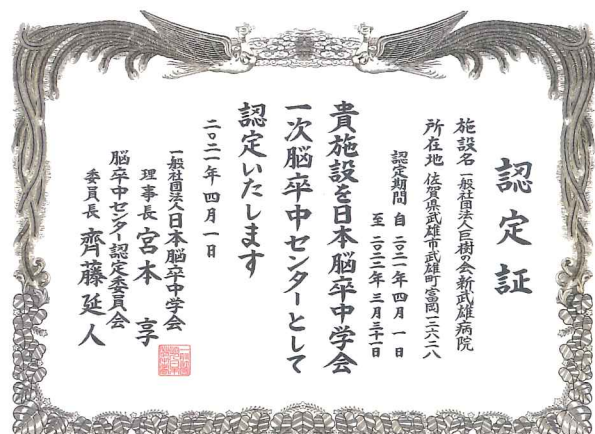 認定証
施設名 一般社団法人巨樹の会新武雄病院
所在地 佐賀県武雄市武雄町富岡一二六二八
認定期間 自 二〇二一年 四月 一日
至 二〇二二年 三月三十一日
貴施設を日本脳卒中学会
一次脳卒中センターとして
認定いたします
二〇二一年 四月 一日
一般社団法人日本脳卒中学会
理事長 宮本 享
脳卒中センター認定委員会
委員長 齊藤延人